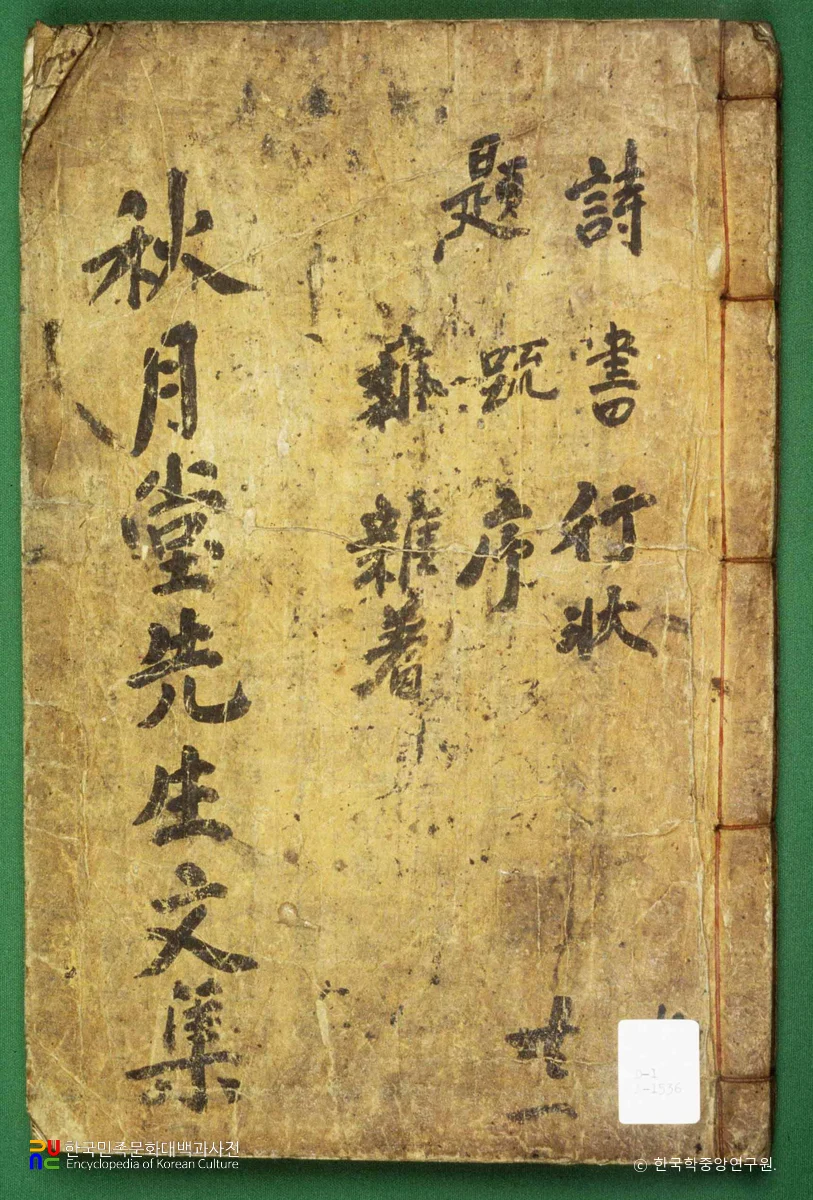 詩 書 行狀
題 䟽 序
雜著
秋月堂先生文集
廿一
한국민족문화대백과사전
Encyclopedia of Korean Culture
© 한국학중앙연구원.